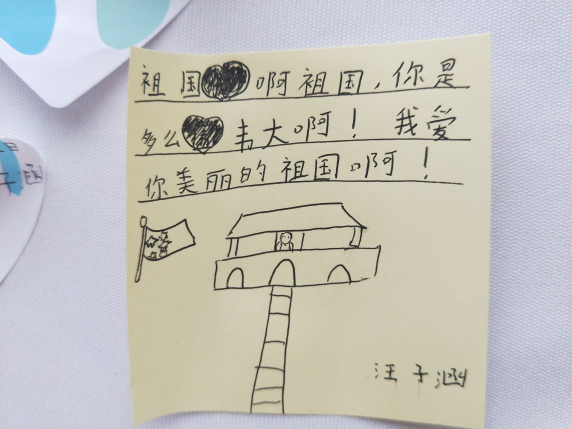 祖国啊祖国，你是
多么韦大啊！我爱
你美丽的祖国啊！
汪子涵
子涵